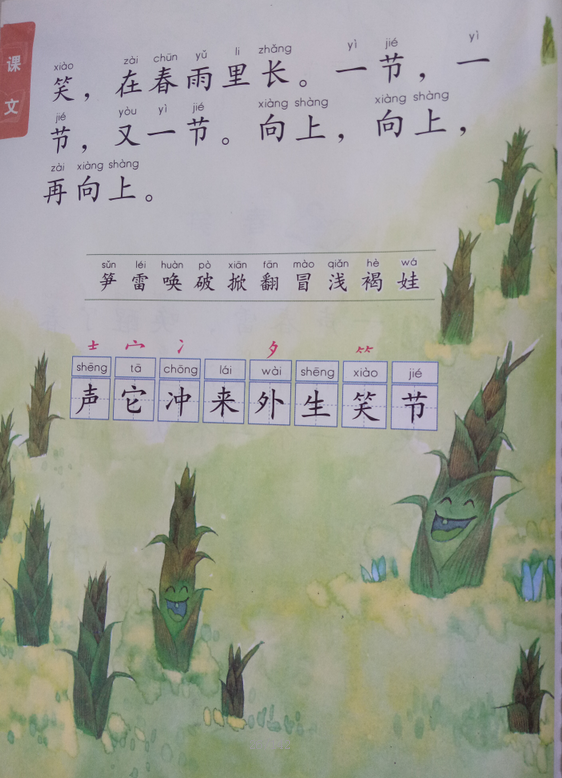 课文
xiào zài chūn yǔ li zhǎng yì jié yì
笑，在春雨里长。一节，一
jié yòu yì jié xiàng shàng xiàng shàng
节，又一节。向上，向上，
zài xiàng shàng
再向上。
sǔn léi huàn pò xiān fān mào qiǎn hè wá
笋 雷 唤 破 掀 翻 冒 浅 褐 娃
士 宀 冫 夕 ⺮
shēng tā chōng lái wài shēng xiào jié
声 它 冲 来 外 生 笑 节